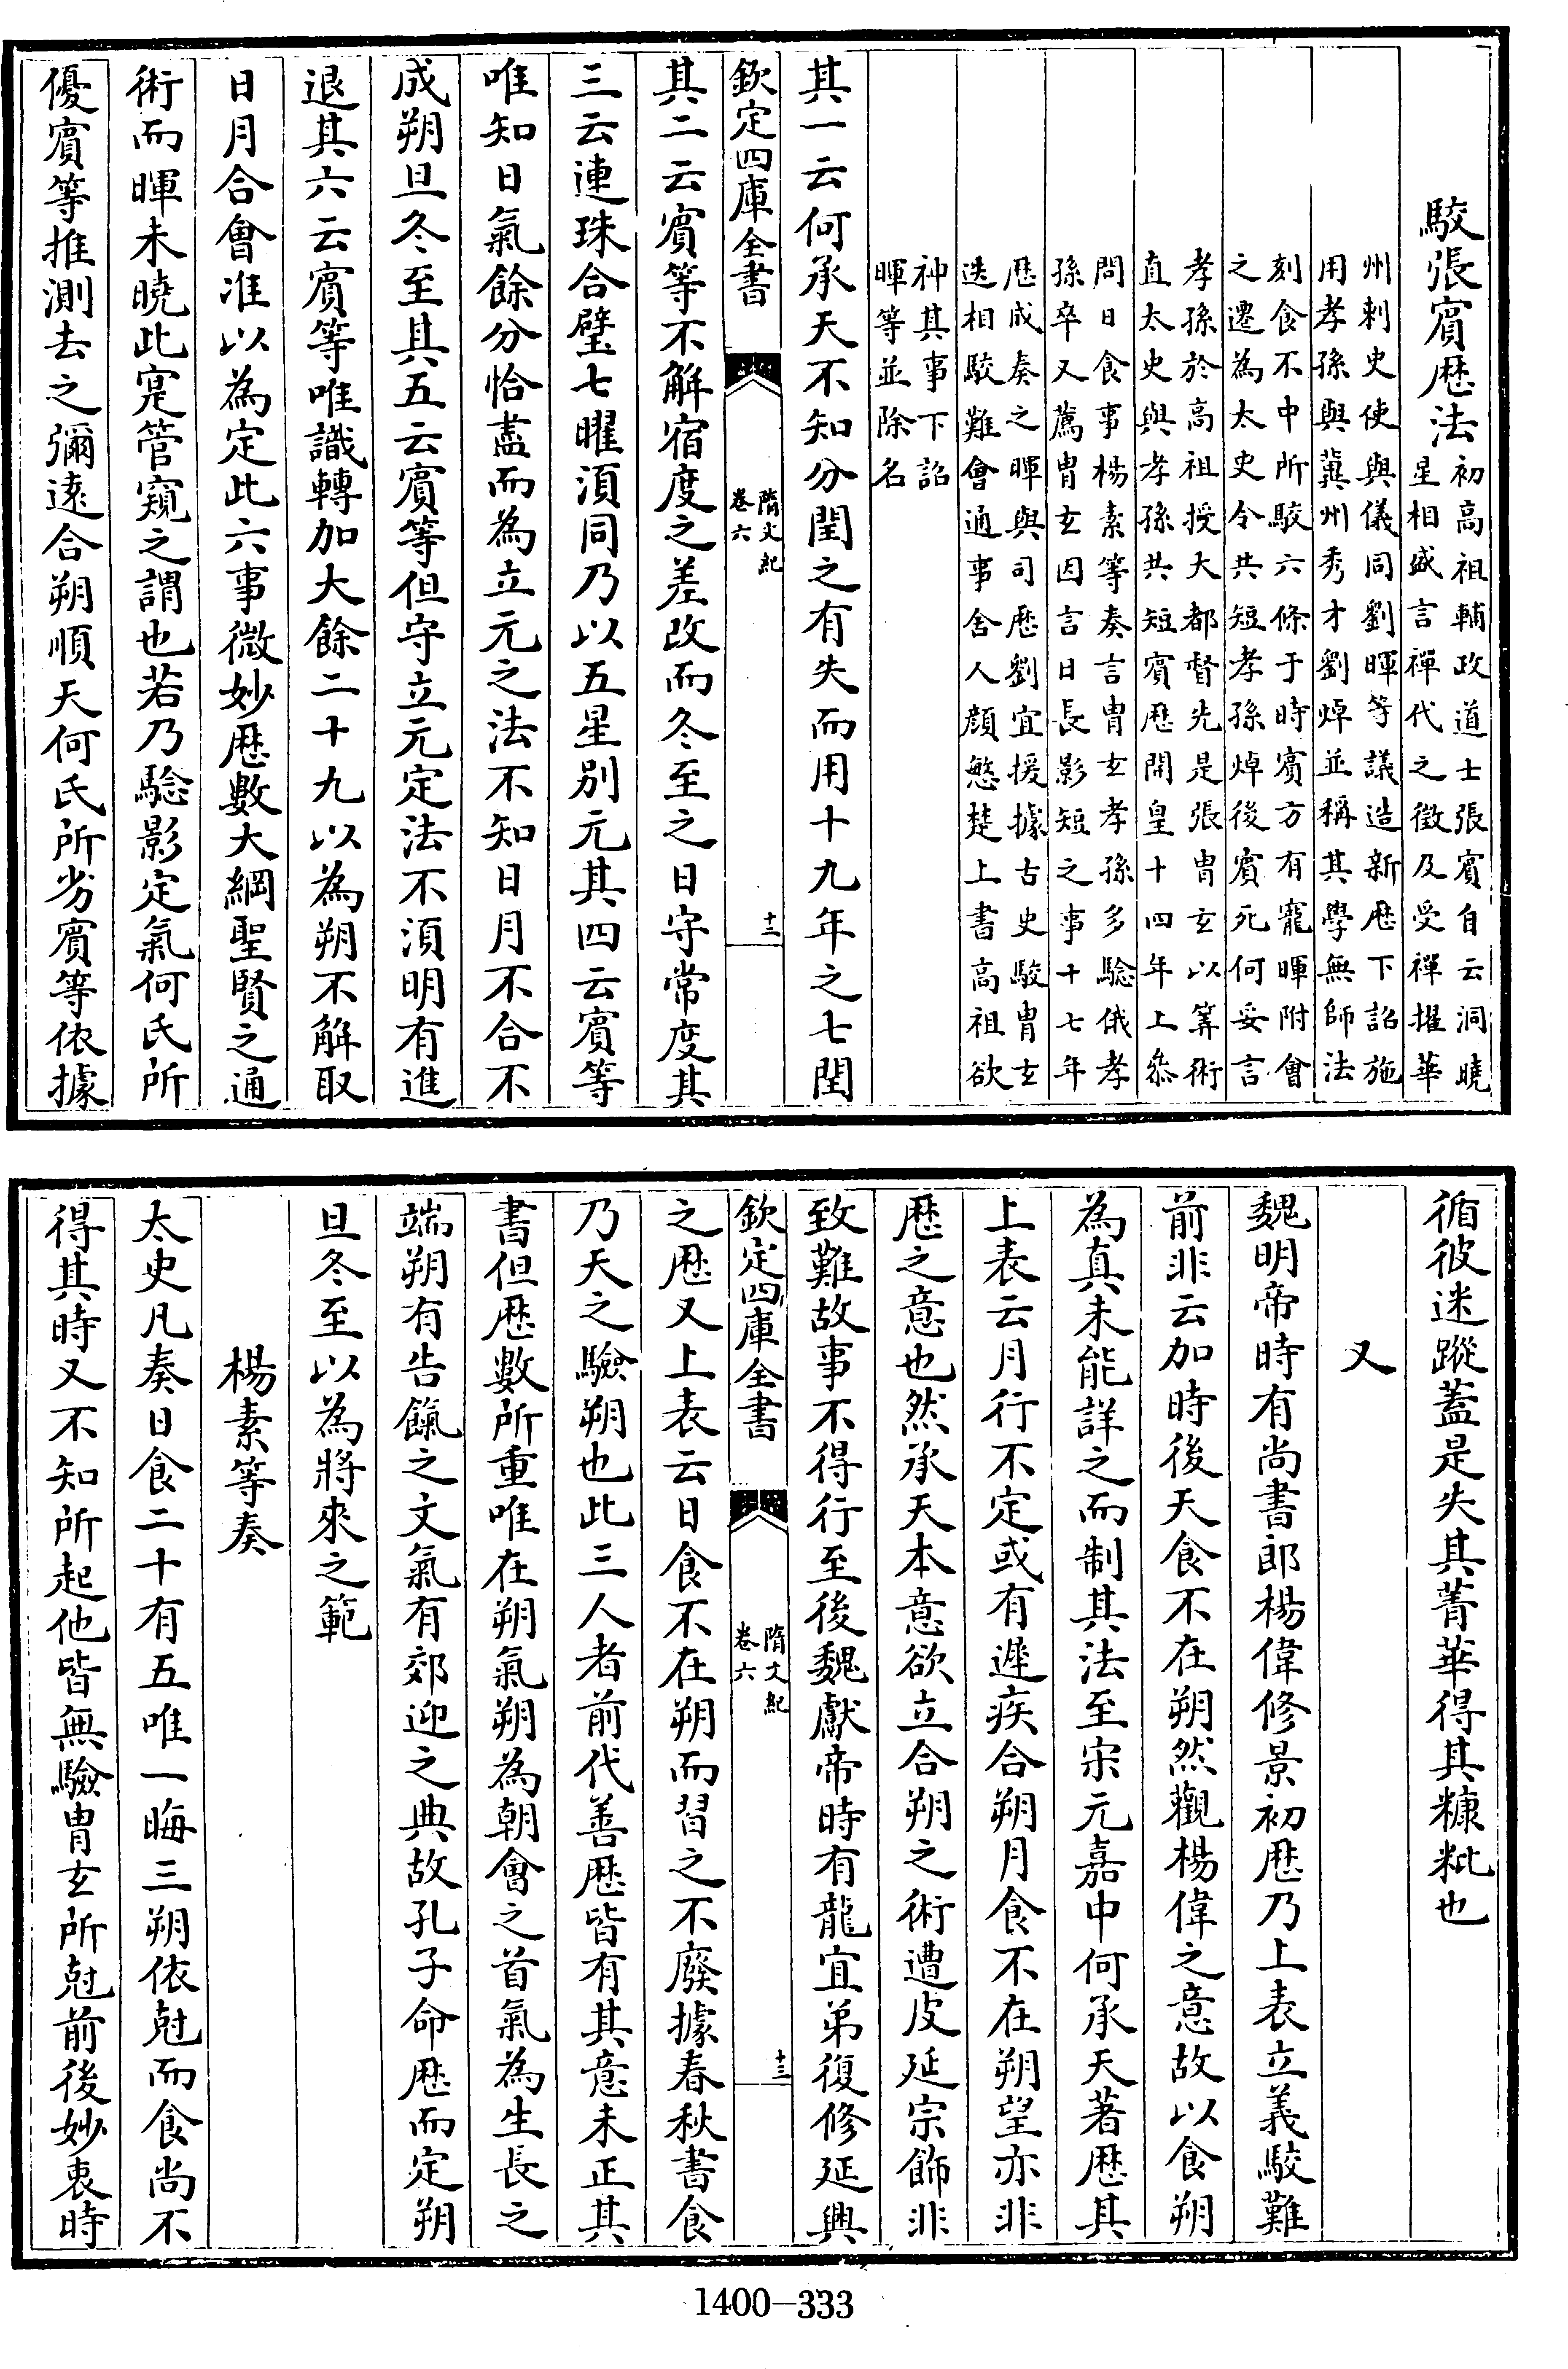 駮張賔厯法
初高祖輔政道士張賔自云洞曉
星相盛言禪代之徵及受禪擢華
州刺史使與儀同劉暉等議造新厯下詔施
用孝孫與冀州秀才劉焯並稱其學無師法
刻食不中所駮六條于時賔方有寵暉附會
之遷為太史令共短孝孫焯後賔死何妥言
孝孫於高祖授大都督先是張胄玄以筭術
直太史與孝孫共短賔厯開皇十四年上叅
問日食事楊素等奏言胄玄孝孫多騐俄孝
孫卒又薦胄玄因言日長影短之事十七年
厯成奏之暉與司厯劉宜援據古史駮胄玄
迭相駮難會通事舍人顔慜楚上書高祖欲
神其事下詔
暉等並除名
其一云何承天不知分閏之有失而用十九年之七閏
欽定四庫全書
隋文紀
卷六
十二
其二云賔等不解宿度之差改而冬至之日守常度其
三云連珠合璧七曜湏同乃以五星别元其四云賔等
唯知日氣餘分恰盡而為立元之法不知日月不合不
成朔旦冬至其五云賔等但守立元定法不湏明有進
退其六云賔等唯識轉加大餘二十九以為朔不解取
日月合會准以為定此六事微妙厯數大綱聖賢之通
術而暉未曉此寔管窺之謂也若乃騐影定氣何氏所
優賔等推測去之彌遠合朔順天何氏所劣賔等依據
循彼迷蹤蓋是失其菁華得其糠粃也
又
魏明帝時有尚書郎楊偉修景初厯乃上表立義駮難
前非云加時後天食不在朔然觀楊偉之意故以食朔
為真未能詳之而制其法至宋元嘉中何承天著厯其
上表云月行不定或有遲疾合朔月食不在朔望亦非
厯之意也然承天本意欲立合朔之術遭皮延宗飾非
致難故事不得行至後魏獻帝時有龍宜弟復修延興
欽定四庫全書
隋文紀
卷六
十三
之厯又上表云日食不在朔而習之不廢據春秋書食
乃天之驗朔也此三人者前代善厯皆有其意未正其
書但厯數所重唯在朔氣朔為朝會之首氣為生長之
端朔有告餼之文氣有郊迎之典故孔子命厯而定朔
旦冬至以為將來之範
楊素等奏
太史凡奏日食二十有五唯一晦三朔依尅而食尚不
得其時又不知所起他皆無驗胄玄所尅前後妙衷時
1400-333